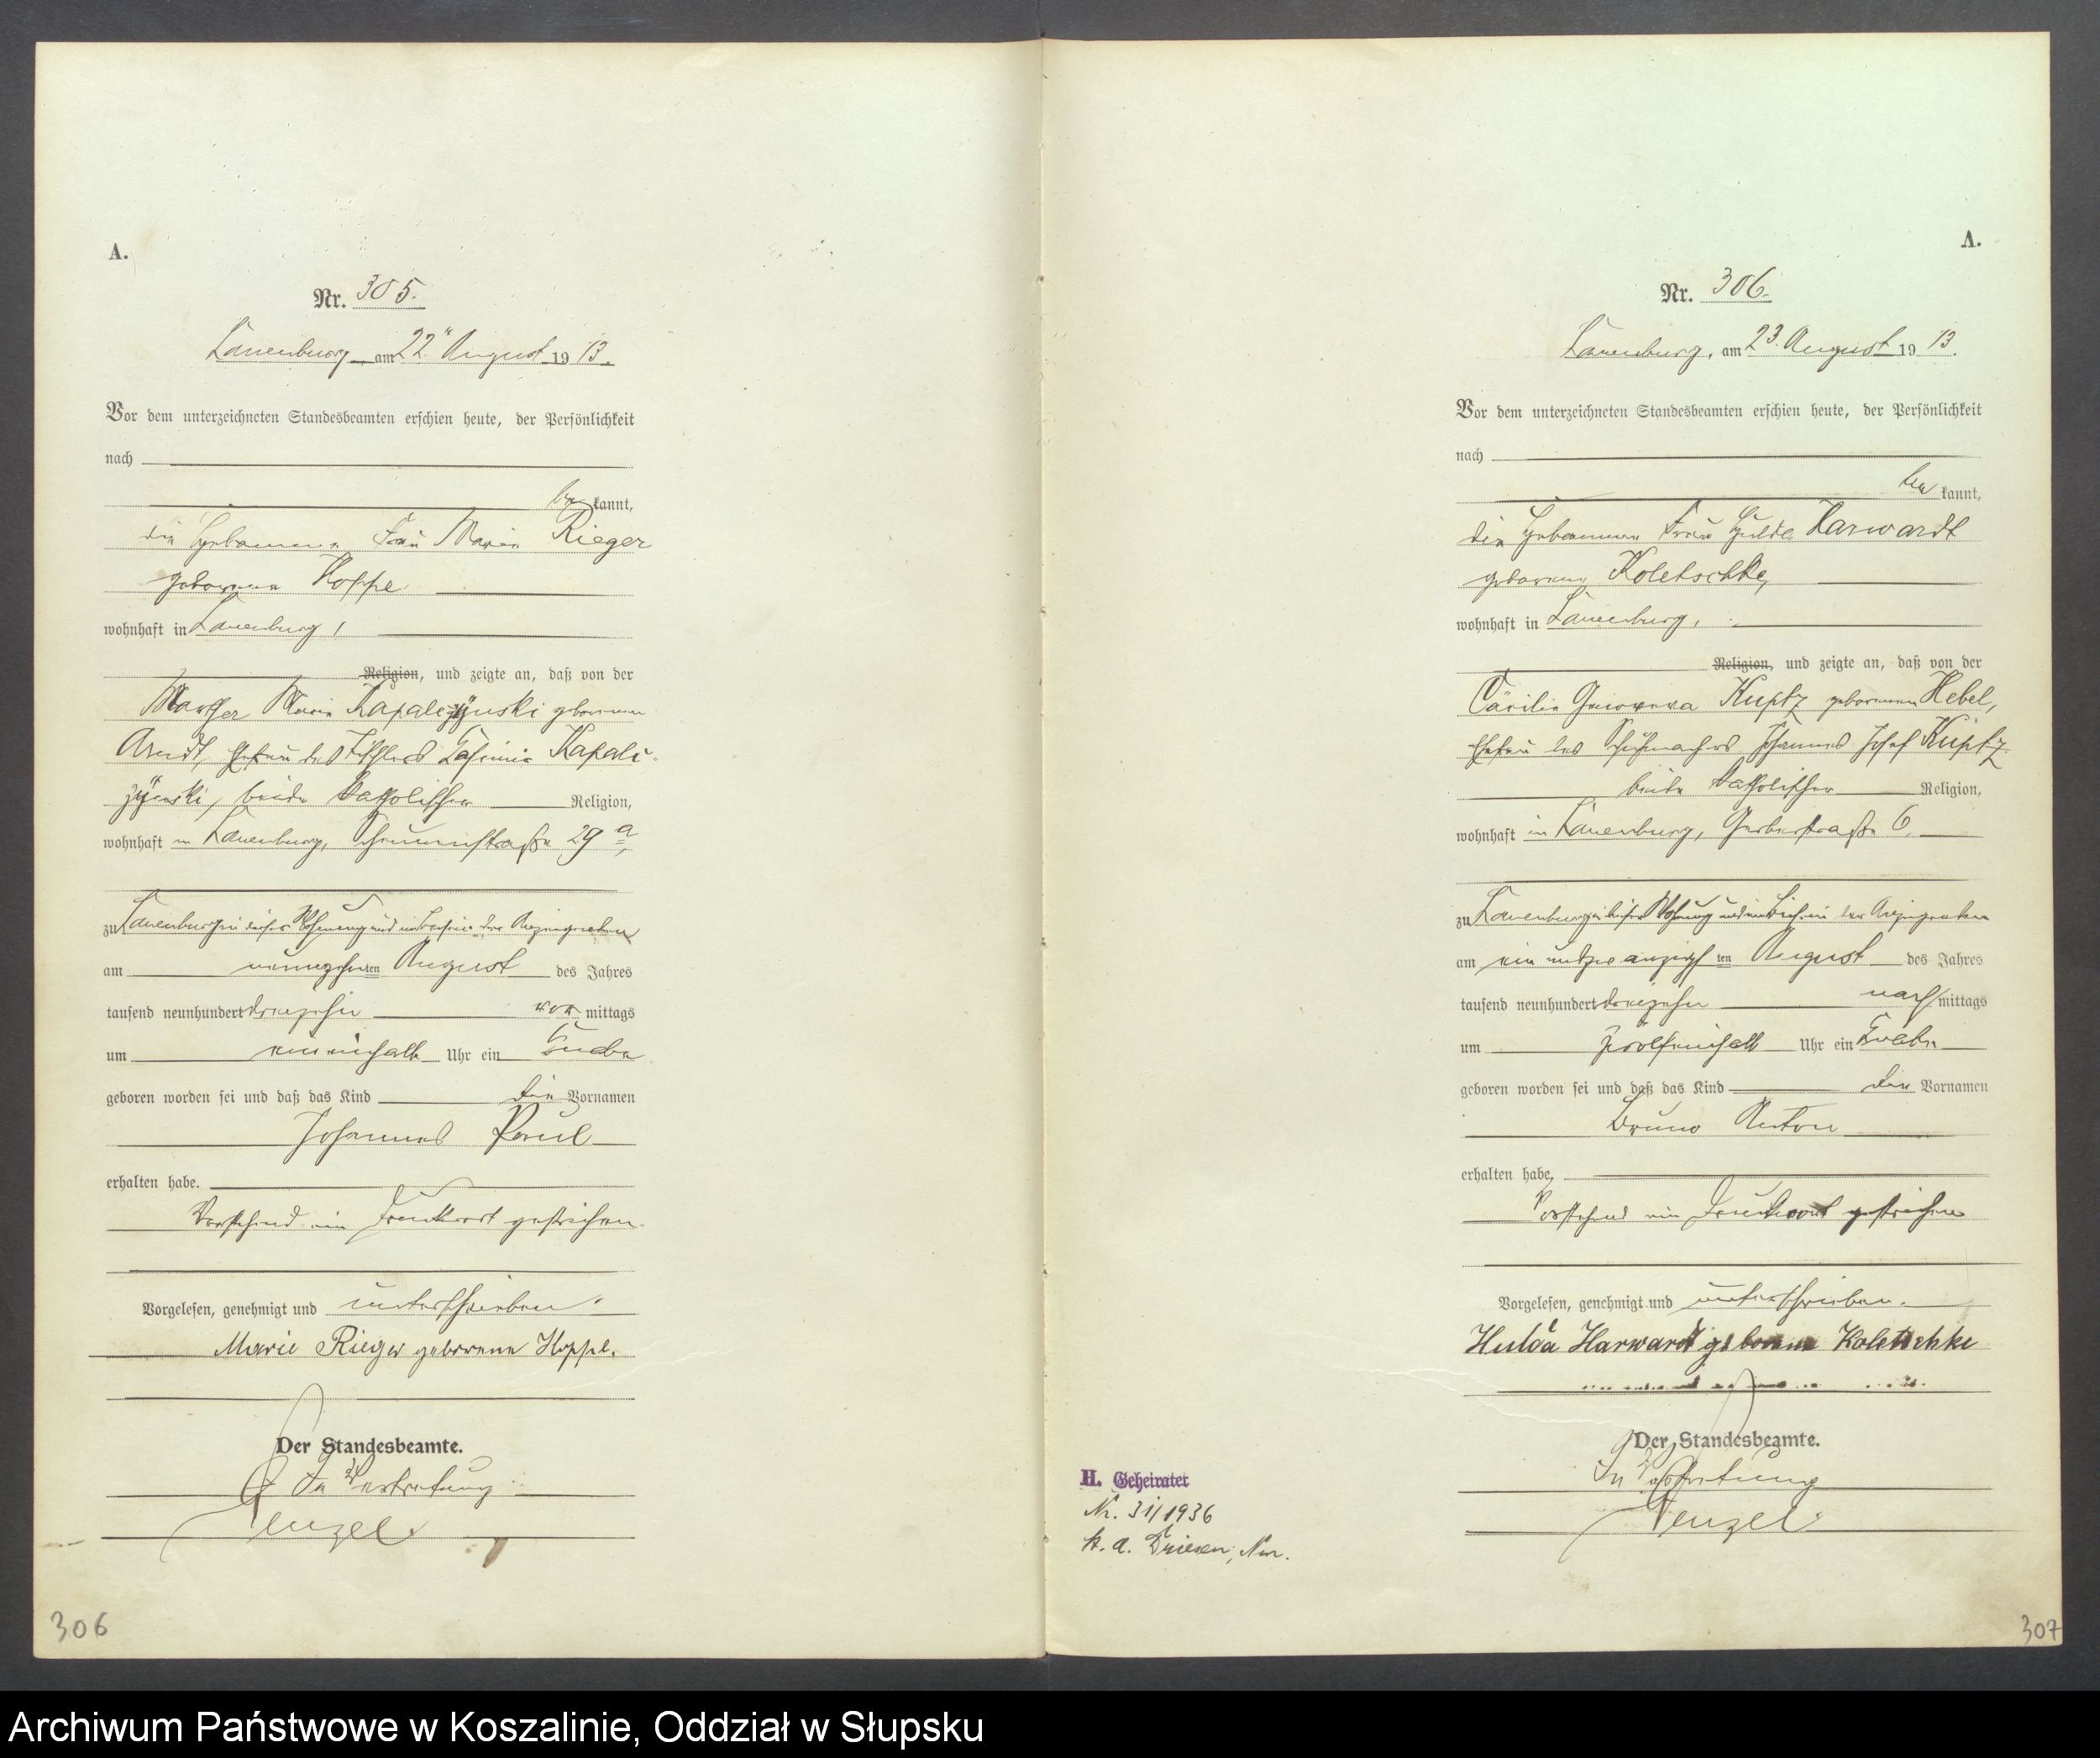 A.
Nr. 305.
Lauenburg am 22. August 1913.
Vor dem unterzeichneten Standesbeamten erschien heute, der Persönlichkeit
nach
bekannt,
die Hebamme Frau Marie Rieger
geborene Hoppe
wohnhaft in Lauenburg,
Religion, und zeigte an, daß von der
Marie geborenen
Arndt, Ehefrau des Tischlers
beide katholischer Religion,
wohnhaft in Lauenburg, 29 a,
zu Lauenburg in dieser Wohnung und im Beisein der Anzeigenden
am neunzehnten August des Jahres
tausend neunhundert dreizehn vormittags
um einhalb Uhr ein Knabe
geboren worden sei und daß das Kind die Vornamen
Johannes Paul
erhalten habe.
Vorstehend ein Druckwort gestrichen.
Vorgelesen, genehmigt und unterschrieben.
Marie Rieger geborene Hoppe.
Der Standesbeamte.
In Vertretung
306
A.
Nr. 306.
Lauenburg, am 23. August 1913.
Vor dem unterzeichneten Standesbeamten erschien heute, der Persönlichkeit
nach
bekannt,
die Hebamme Frau Hulda Harwardt
geborene Koletschke,
wohnhaft in Lauenburg,
Religion, und zeigte an, daß von der
Cäcilie Kuptz geborenen Hebel,
Ehefrau des Schuhmachers Johannes Josef Kuptz
beide katholischer Religion,
wohnhaft in Lauenburg, Gerberstraße 6,
zu Lauenburg in dieser Wohnung und im Beisein der Anzeigenden
am ein und zwanzigsten August des Jahres
tausend neunhundert dreizehn nachmittags
um zwölfeinhalb Uhr ein Knabe
geboren worden sei und daß das Kind die Vornamen
Bruno Anton
erhalten habe.
Vorstehend ein Druckwort gestrichen
Vorgelesen, genehmigt und unterschrieben.
Hulda Harwardt geborene Koletschke
Der Standesbeamte.
In Vertretung
H. Geheiratet
Nr. 31/1936
St. A. Driesen, Nm.
307
Archiwum Państwowe w Koszalinie, Oddział w Słupsku